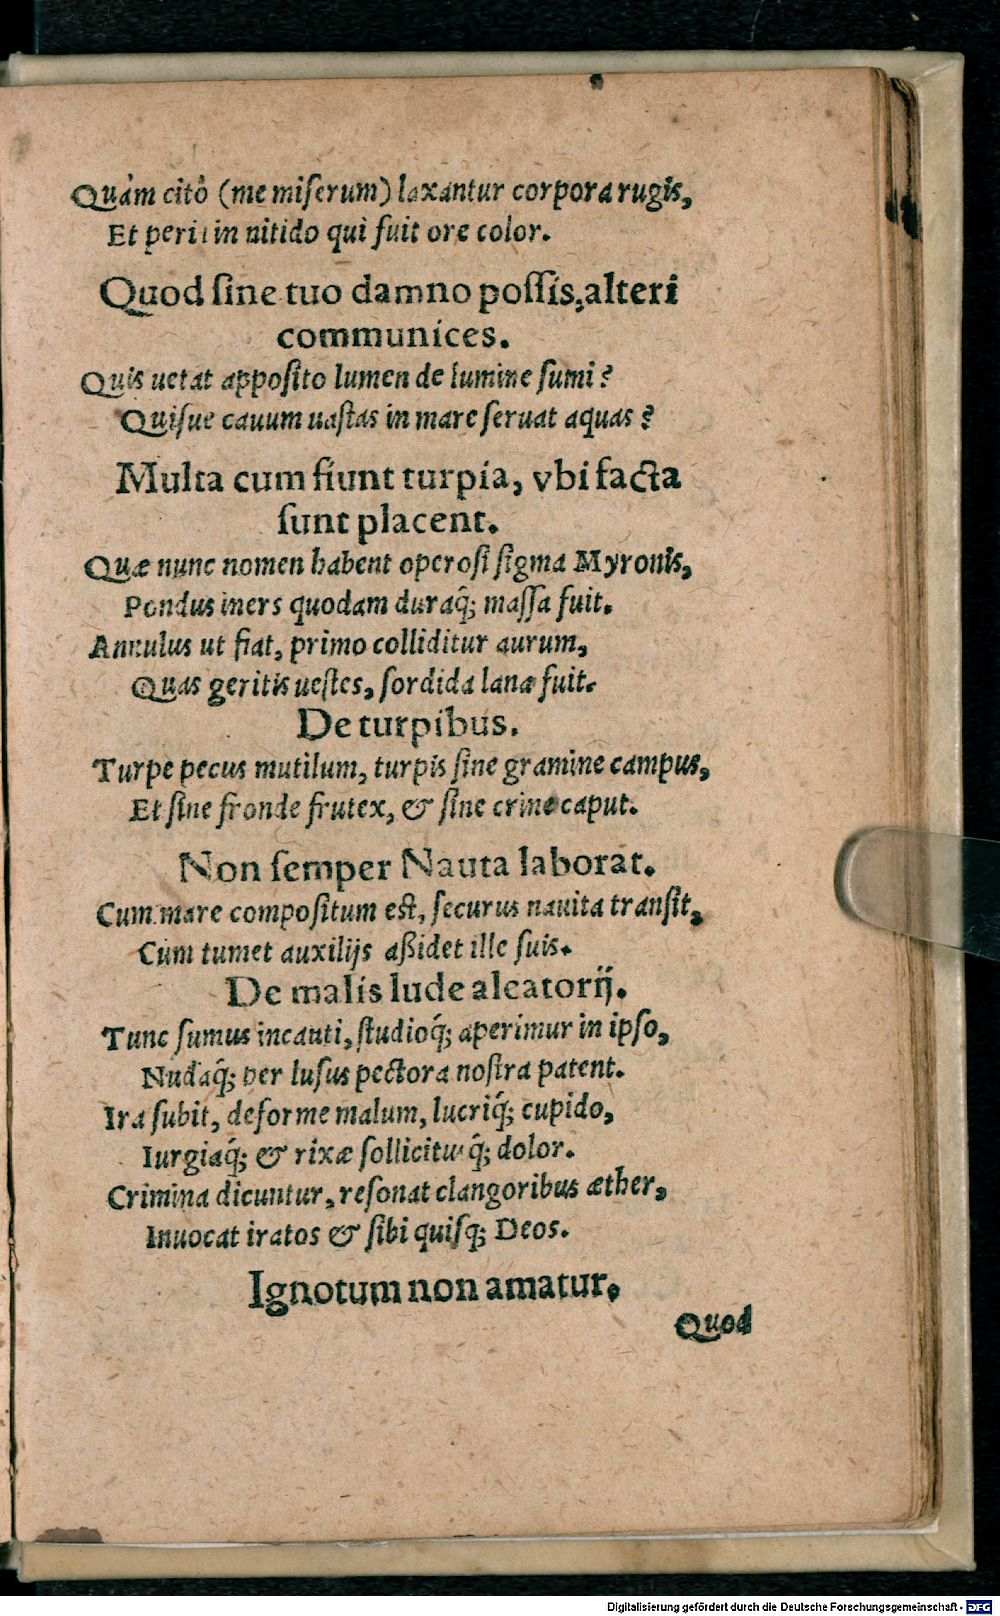 Quàm citò (me miserum) laxantur corpora rugis,
Et perit in nitido qui fuit ore color.
Quod sine tuo damno possis, alteri
communices.
Quis uetat apposito lumen de lumine sumi?
Quisue cauum uastas in mare seruat aquas?
Multa cum fiunt turpia, vbi facta
sunt placent.
Quæ nunc nomen habent operosi sigma Myronis,
Pondus iners quodam duraq́; massa fuit.
Annulus ut fiat, primo colliditur aurum,
Quas geritis uestes, sordida lana fuit.
De turpibus.
Turpe pecus mutilum, turpis sine gramine campus,
Et sine fronde frutex, & sine crine caput.
Non semper Nauta laborat.
Cum mare compositum est, securus nauita transit,
Cum tumet auxilijs aßidet ille suis.
De malis lude aleatorij.
Tunc sumus incauti, studioq́; aperimur in ipso,
Nudaq́; per lusus pectora nostra patent.
Ira subit, deforme malum, lucriq́; cupido,
Iurgiaq́; & rixæ sollicitusq́; dolor.
Crimina dicuntur, resonat clangoribus æther,
Inuocat iratos & sibi quisq; Deos.
Ignotum non amatur.
Quod
Digitalisierung gefördert durch die Deutsche Forschungsgemeinschaft - DFG